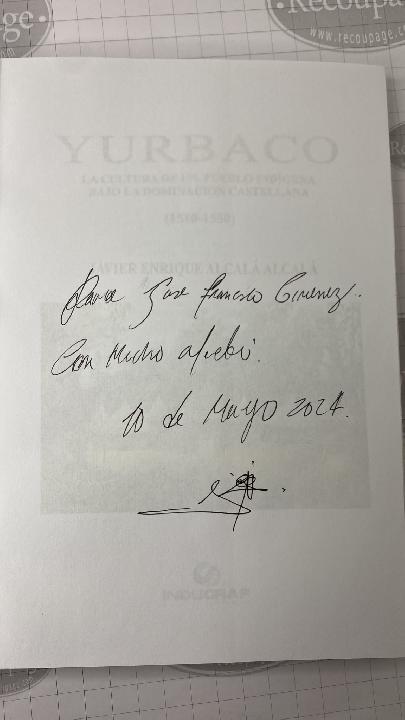 ge
Recoupage
www.recoupage.com
YURBACO
LA CULTURA DE UN PUEBLO INDÍGENA
BAJO LA DOMINACIÓN CASTELLANA
(1510-1550)
JAVIER ENRIQUE ALCALÁ ALCALÁ
Para Jose Francisco Gimenez.
Con Mucho afecto.
10 de Mayo 2024.
INDUGRAF